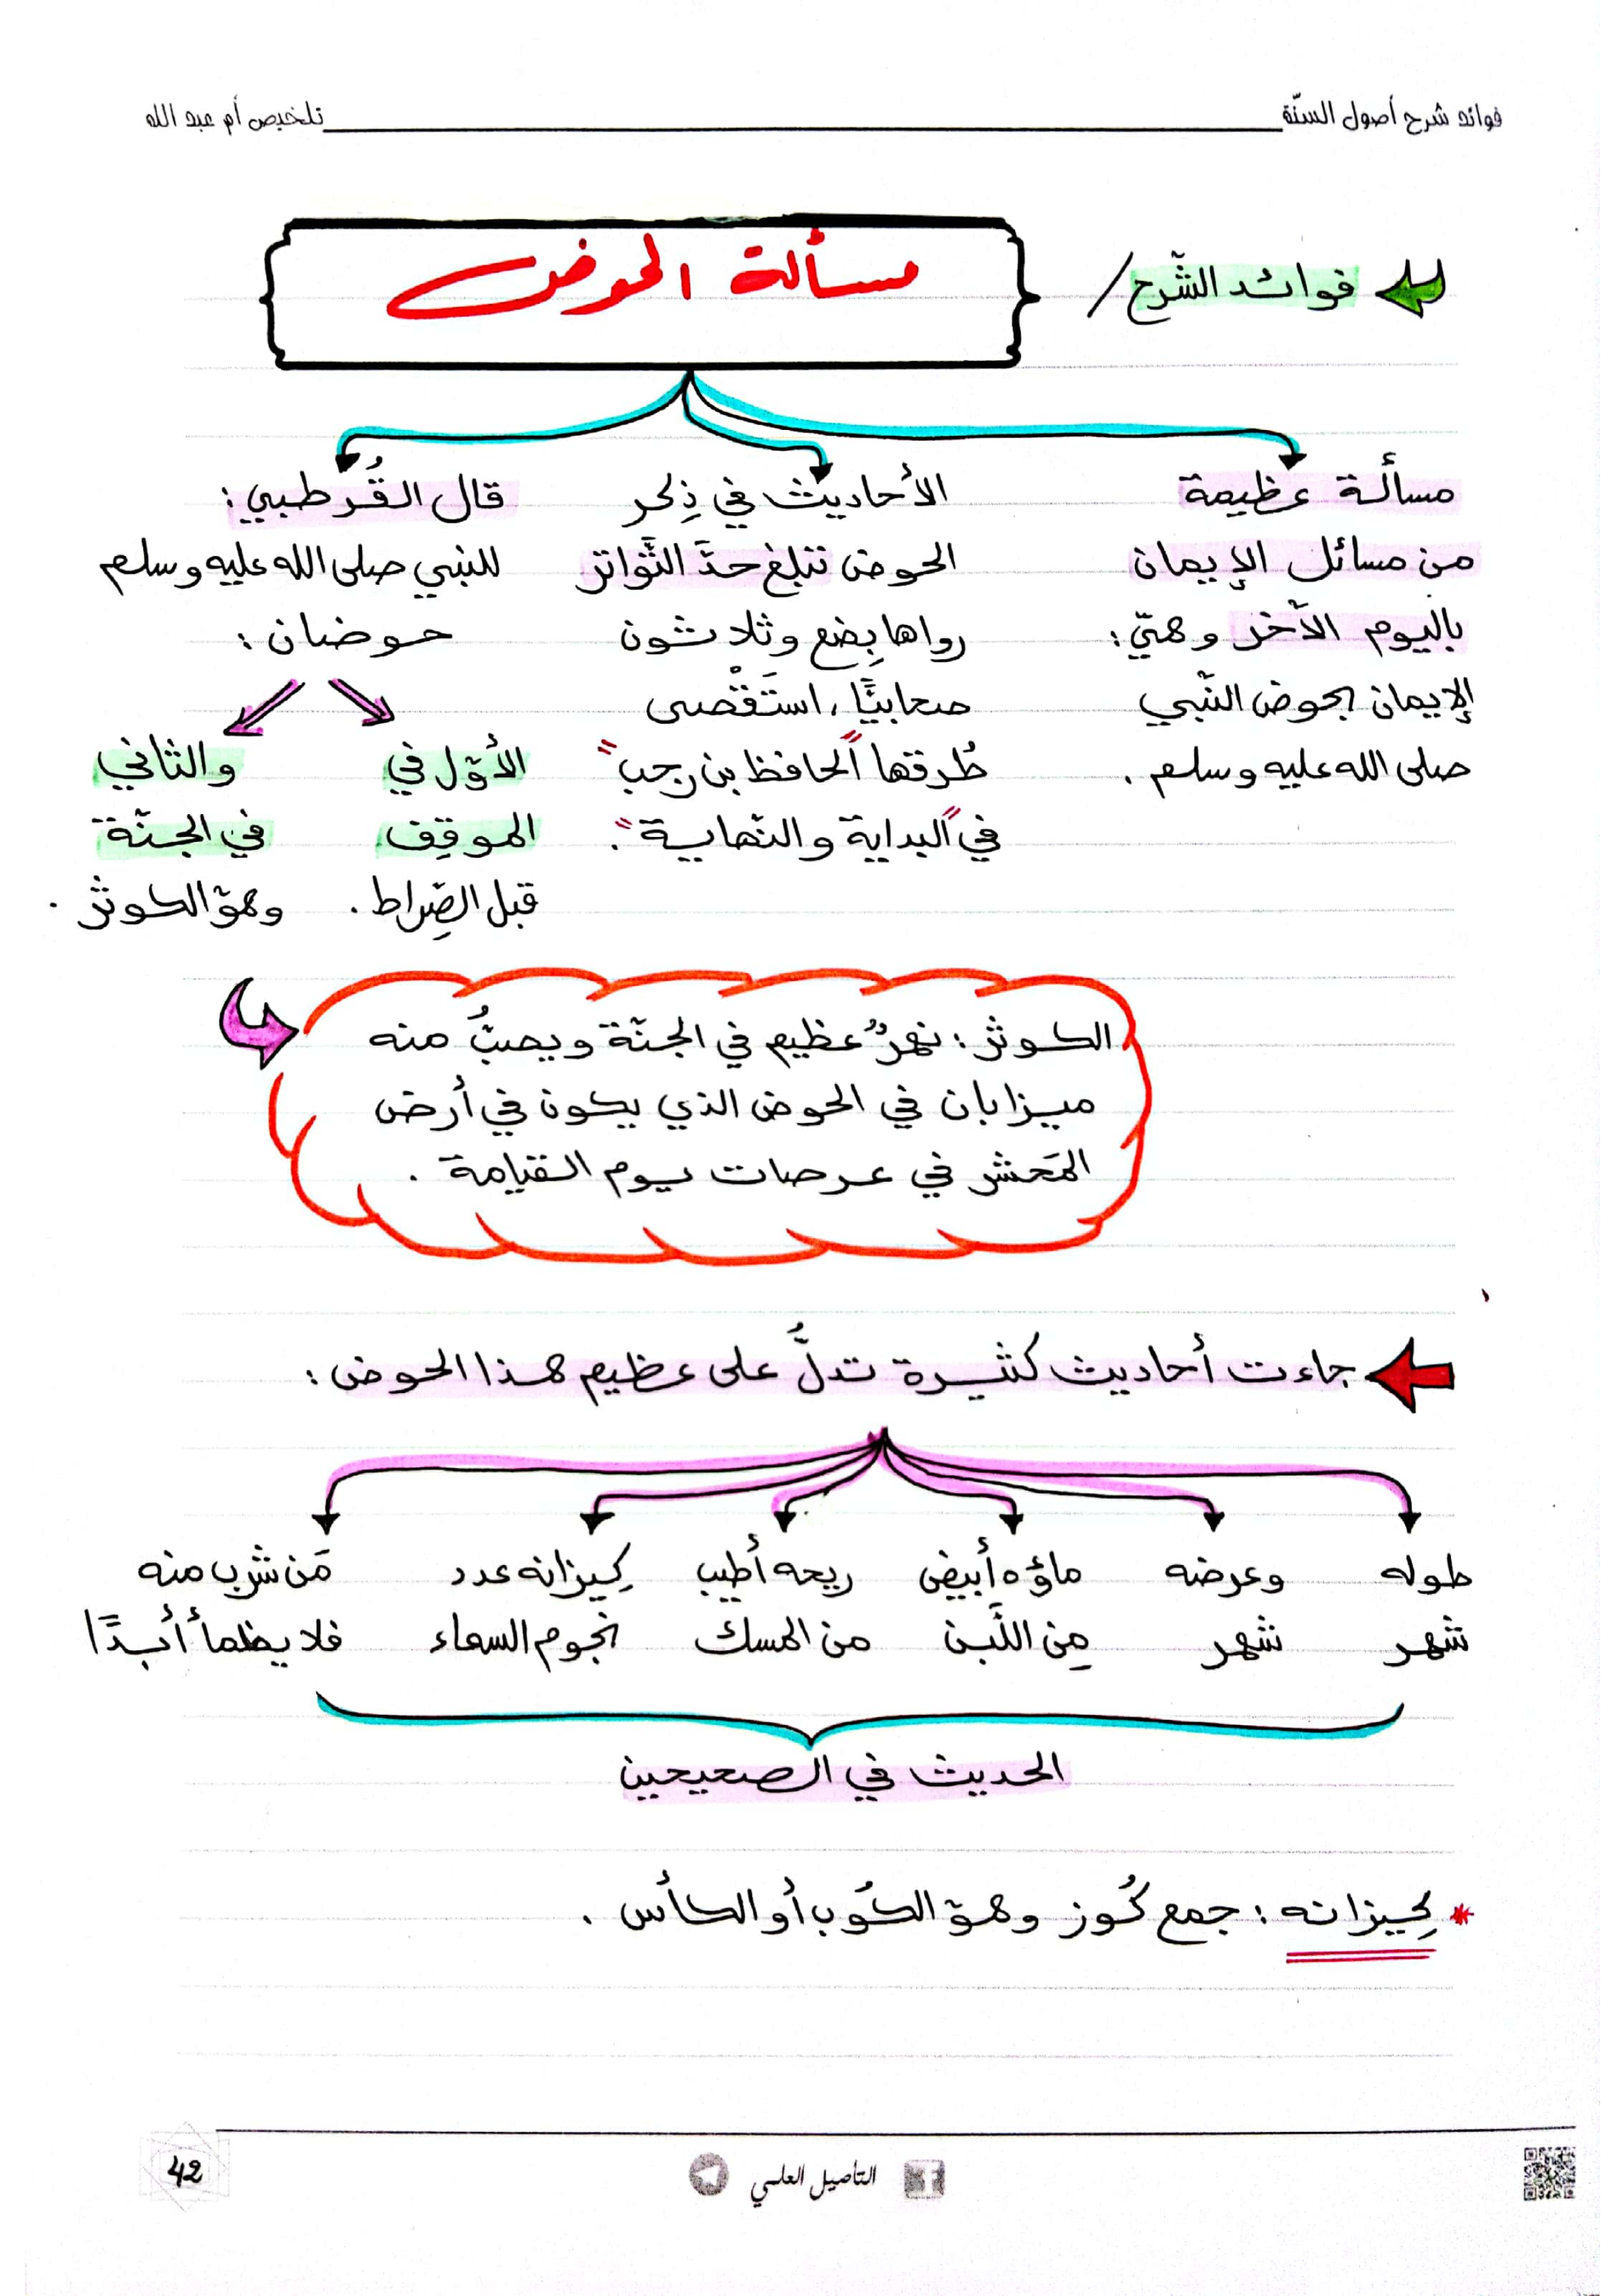 فوائد شرح أصول السنّة
تلخيص أم عبد الله
فوائد الشّرح /
مسألة الحوض
مسألة عظيمة
من مسائل الإيمان
باليوم الآخر وهيّ:
الإيمان بحوض النّبي
صلى الله عليه وسلم.
الأحاديث في ذِكر
الحوض تبلغ حدَّ التَّواتر
رواها بِضع وثلاثون
صحابيًّا، استَقْصى
طُرقها "الحافظ بن رجب"
في "البداية والنّهاية".
قال القُرطبي:
للنبي صلى الله عليه وسلم
حوضان:
الأوّل في
الموقِف
قبل الصِّراط.
والثاني
في الجنّة
وهوّ الكوثر.
الكوثر: نهرٌ عظيم في الجنّة ويصبُّ منه
ميزابان في الحوض الذي يكون في أرض
المَحشر في عرصات يوم القيامة.
جاءت أحاديث كثيرة تدلُّ على عظيم هذا الحوض:
طوله
شهر
وعرضه
شهر
ماؤه أبيض
مِن اللَّبن
ريحه أطيب
من المسك
كِيزانه عدد
نجوم السماء
مَن شرب منه
فلا يظمأ أبدًا
الحديث في الصحيحين
* كِيزانه: جمع كُوز وهوّ الكُوب أو الكأس.
التأصيل العلمي
42